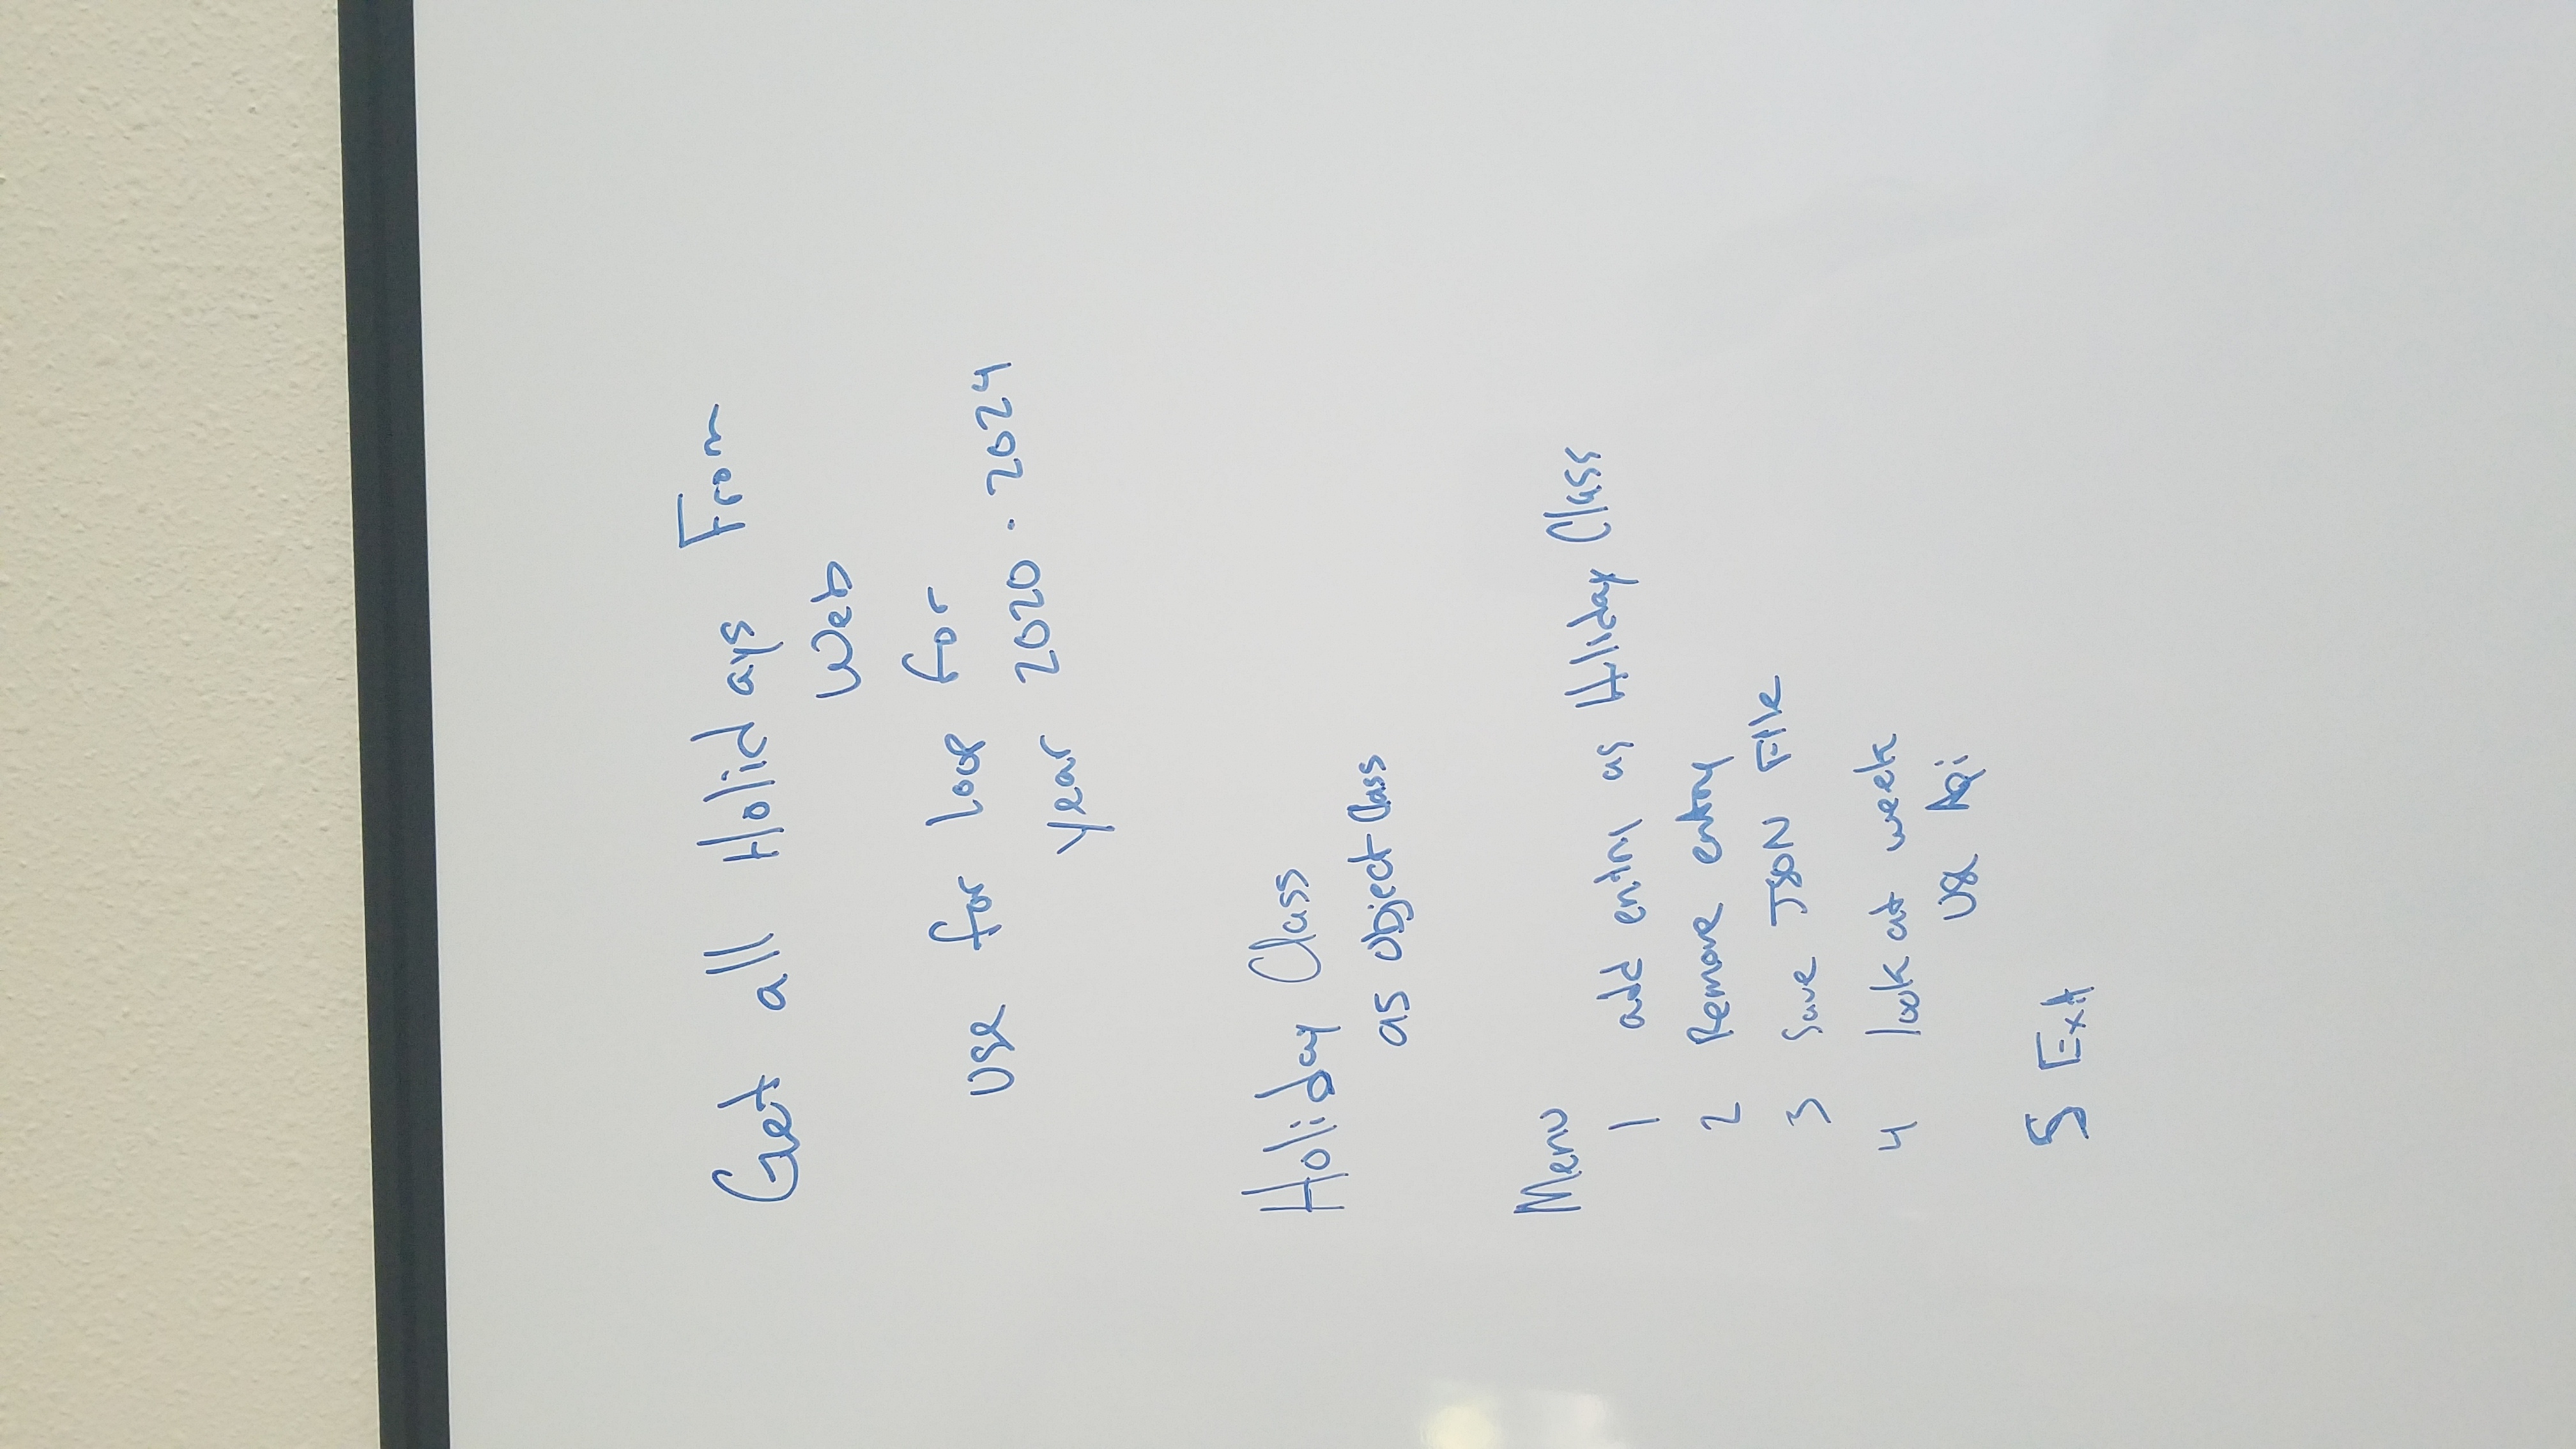 Get all Holidays From
Web
use for loop for
year 2020 - 2024
Holiday Class
as object Class
Menu
1 add entry as Holiday Class
2 Remove entry
3 Save JSON File
4 look at week
use Api
5 Exit